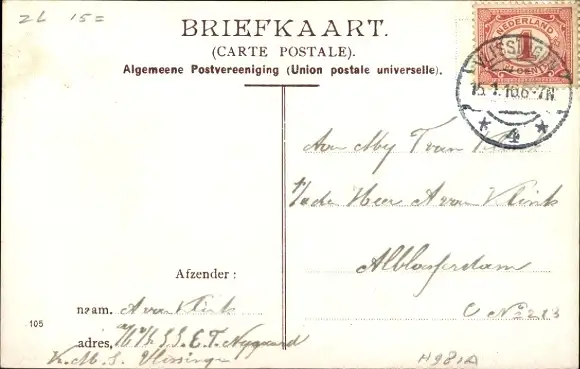 26 15=
BRIEFKAART.
(CARTE POSTALE).
Algemeene Postvereeniging (Union postale universelle).
NEDERLAND
1
CENT
VLISSINGEN
15.1.16.6-7N
4
Aan Mej T van Vlink
p/a de Heer A van Vlink
Alblasserdam
C No 213
Afzender:
naam. A van Vlink
adres, S.S. E.T. Nygaard
K.M.S. Vlissingen
105
H981A